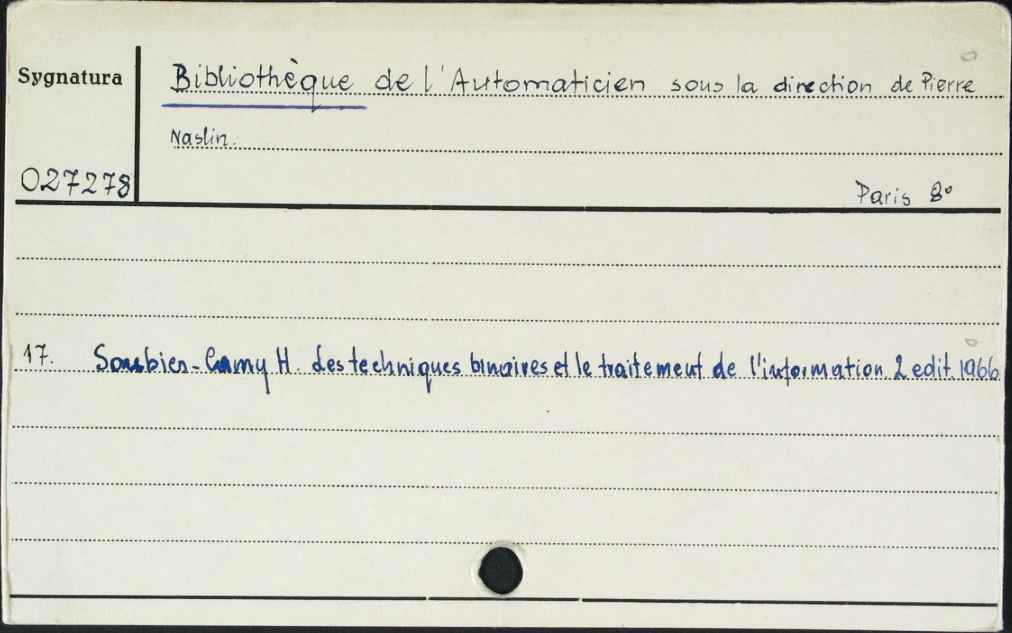 Sygnatura
Bibliothèque de l'Automaticien sous la direction de Pierre
Naslin.
027278
Paris 8°
17. Soubies-Camy H. Les techniques binaires et le traitement de l'information 2 edit. 1966